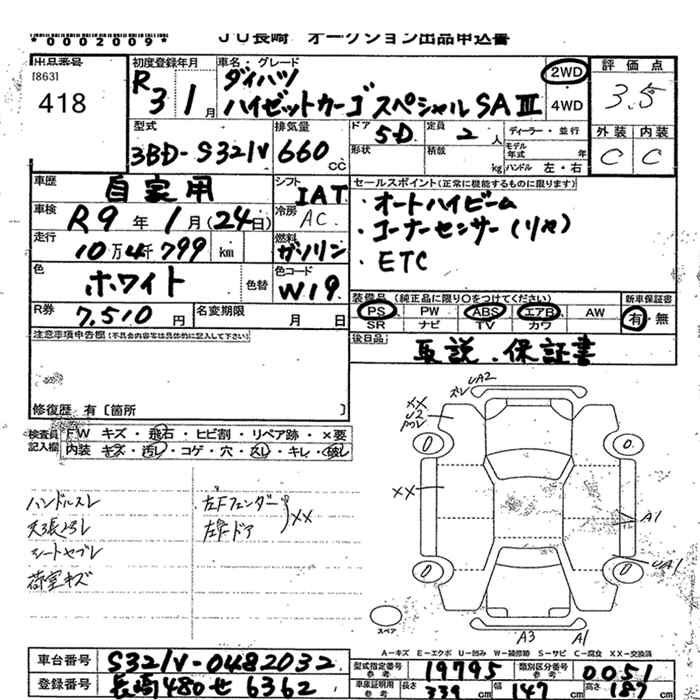 *0002009*
JU長崎 オークション出品申込書
出品番号
[863]
418
初度登録年月
R3 1月
車名・グレード
ダイハツ
ハイゼットカーゴ スペシャルSAⅢ
2WD
4WD
評価点
3.5
外装 内装
C C
型式
3BD-S321V
排気量
660cc
ドア
5D
形状
定員
2人
積載
kg
ディーラー・並行
モデル年式 年
ハンドル 左・右
車歴
自家用
シフト
IAT
セールスポイント(正常に機能するものに限ります)
・オートハイビーム
・コーナーセンサー(リヤ)
・ETC
車検
R9年1月(24日)
冷房
AC
走行
10万4千799km
燃料
ガソリン
色
ホワイト
色替
色コード
W19
装備品(純正品に限り○をつけてください)
PS PW ABS エアB AW
SR ナビ TV カワ
新車保証書
有・無
R券
7,510円
名変期限
月 日
後日品
取説・保証書
注意事項申告欄(不具合内容等は具体的に記入して下さい)
修復歴 有〔箇所 〕
検査員記入欄
FW キズ・飛石・ヒビ割・リペア跡・×要
内装 キズ・汚レ・コゲ・穴・スレ・キレ・破レ
ハンドルスレ
天張ヨゴレ
シートヤブレ
荷室キズ
左Fフェンダー
左Fドア
XX
UA2
XX
U2
XX
A1
UA1
A3
A1
スペア
A-キズ E-エクボ U-凹み W-補修跡 S-サビ C-腐食 XX-交換済
車台番号
S321V-0482032
登録番号
長崎480せ6362
型式指定番号 参考
19795
類別区分番号 参考
0051
車庫証明用 参考
長さ 339cm
幅 147cm
高さ 187cm